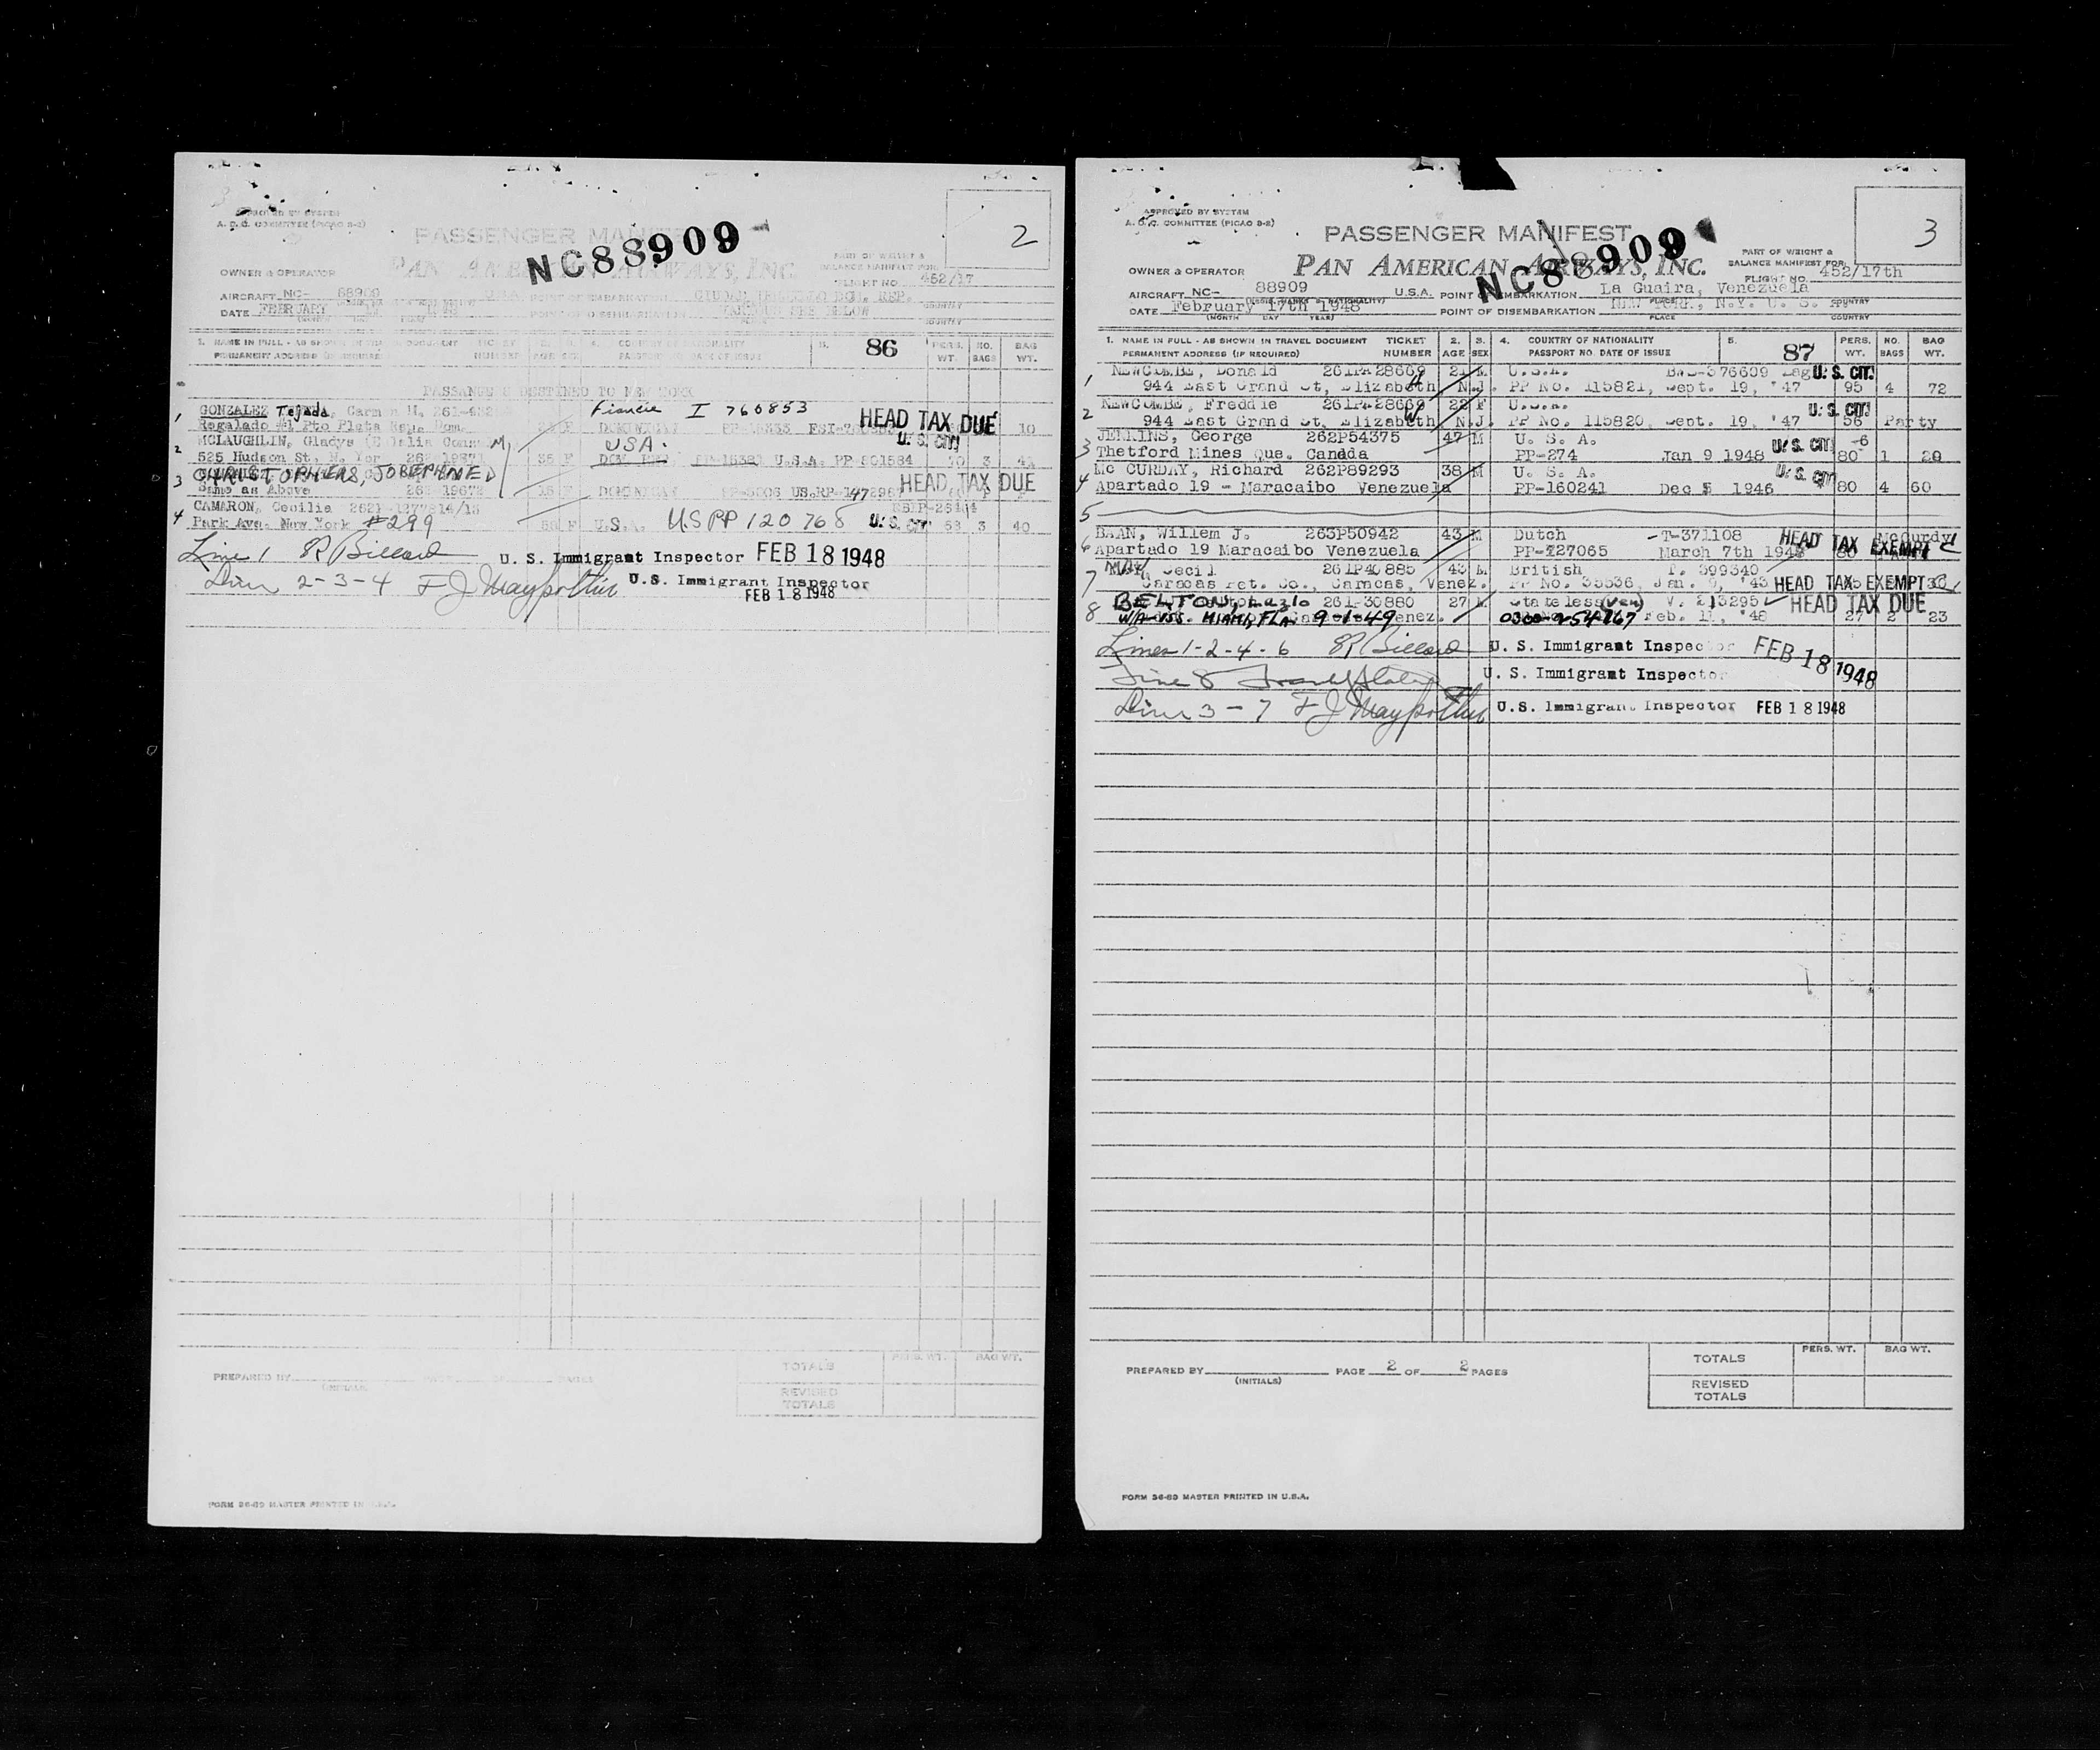 APPROVED BY SYSTEM
A.O.C. COMMITTEE (PICAO 8-2)
PASSENGER MANIFEST
NC88909
2
OWNER & OPERATOR
PAN AMERICAN AIRWAYS, INC.
PART OF WEIGHT &
BALANCE MANIFEST FOR
FLIGHT NO 452/17
AIRCRAFT NC- 88909
U.S.A. POINT OF EMBARKATION CIUDAD TRUJILLO DOM. REP.
DATE FEBRUARY
POINT OF DISEMBARKATION VARIOUS SEE BELOW
1. NAME IN FULL - AS SHOWN IN TRAVEL DOCUMENT TICKET 4. COUNTRY OF NATIONALITY 5. 86 PERS. NO. BAG
PERMANENT ADDRESS (IF REQUIRED) NUMBER AGE SEX PASSPORT NO. DATE OF ISSUE WT. BAGS WT.
PASSANGERS DESTINED TO NEW YORK
1 GONZALEZ Tejada, Carmen M. Fiancée I 760853 HEAD TAX DUE
Regalado #1 Pto Plata Rep. Dom. F DOMINICAN 10
2 MCLAUGHLIN, Gladys USA. U. S. CIT.
525 Hudson St., N. Yor 35 F U.S.A. PP 801584 3
3 CHRISTOPHERS, JOSEPHINE D HEAD TAX DUE
Same as Above F DOMINICAN
4 CAMARON, Cecilia
Park Ave. New York #299 F U.S.A. US PP 120768 U. S. CIT. 3 40
Line 1 SR Billard U. S. Immigrant Inspector FEB 18 1948
Line 2-3-4 F J Maypother U.S. Immigrant Inspector
FEB 18 1948
TOTALS PERS. WT. BAG WT.
PREPARED BY
(INITIALS)
PAGES
REVISED
TOTALS
FORM 36-89 MASTER PRINTED IN U.S.A.
APPROVED BY SYSTEM
A.O.C. COMMITTEE (PICAO 8-2)
PASSENGER MANIFEST
NC88909
3
OWNER & OPERATOR
PAN AMERICAN AIRWAYS, INC.
PART OF WEIGHT &
BALANCE MANIFEST FOR
FLIGHT NO. 452/17th
AIRCRAFT NC- 88909 U.S.A. POINT OF EMBARKATION La Guaira, Venezuela
DATE February 17th 1948 POINT OF DISEMBARKATION NEW YORK., N.Y. U. S.
(MONTH DAY YEAR) PLACE COUNTRY
1. NAME IN FULL - AS SHOWN IN TRAVEL DOCUMENT TICKET 2. 3. 4. COUNTRY OF NATIONALITY 5. 87 PERS. NO. BAG
PERMANENT ADDRESS (IF REQUIRED) NUMBER AGE SEX PASSPORT NO. DATE OF ISSUE WT. BAGS WT.
1 NEWCOMBE, Donald 261PA28669 21 M U.S.A. U. S. CIT.
944 East Grand St, Elizabeth N.J. PP No. 115821, Sept. 19, '47 95 4 72
2 NEWCOMBE, Freddie 261PA28669 22 F U.S.A. U. S. CIT.
944 East Grand St, Elizabeth N.J. PP No. 115820, Sept. 19, '47 56 Party
3 JENKINS, George 262P54375 47 M U. S. A. U. S. CIT. -6
Thetford Mines Que. Canada PP-274 Jan 9 1948 80 1 20
4 Mc CURDAY, Richard 262P89293 38 M U. S. A. U. S. CIT.
Apartado 19 - Maracaibo Venezuela PP-160241 Dec 5 1946 80 4 60
5
6 BAAN, Willem J. 263P50942 43 M Dutch -T-371108 HEAD TAX EXEMPT McCurdy
Apartado 19 Maracaibo Venezuela PP-127065 March 7th 80
7 MAY, Cecil 261P40885 43 M British P. 399340
Caracas Pet. Co., Caracas, Venez. PP No. 35536, Jan. 9, '43 HEAD TAX EXEMPT
8 BELTON, Lazlo 261-30880 27 M Stateless (Ven) V. 213295 HEAD TAX DUE
W/A VSS. MIAMI, FLA. 9-1-49 Venez. 0300-254267 Feb. 11, '48 27 2 23
Lines 1-2-4-6 SR Billard U. S. Immigrant Inspector FEB 18 1948
Line 8 U. S. Immigrant Inspector
Line 3-7 F J Maypother U.S. Immigrant Inspector FEB 18 1948
PERS. WT. BAG WT.
TOTALS
PREPARED BY PAGE 2 OF 2 PAGES
(INITIALS)
REVISED
TOTALS
FORM 36-89 MASTER PRINTED IN U.S.A.